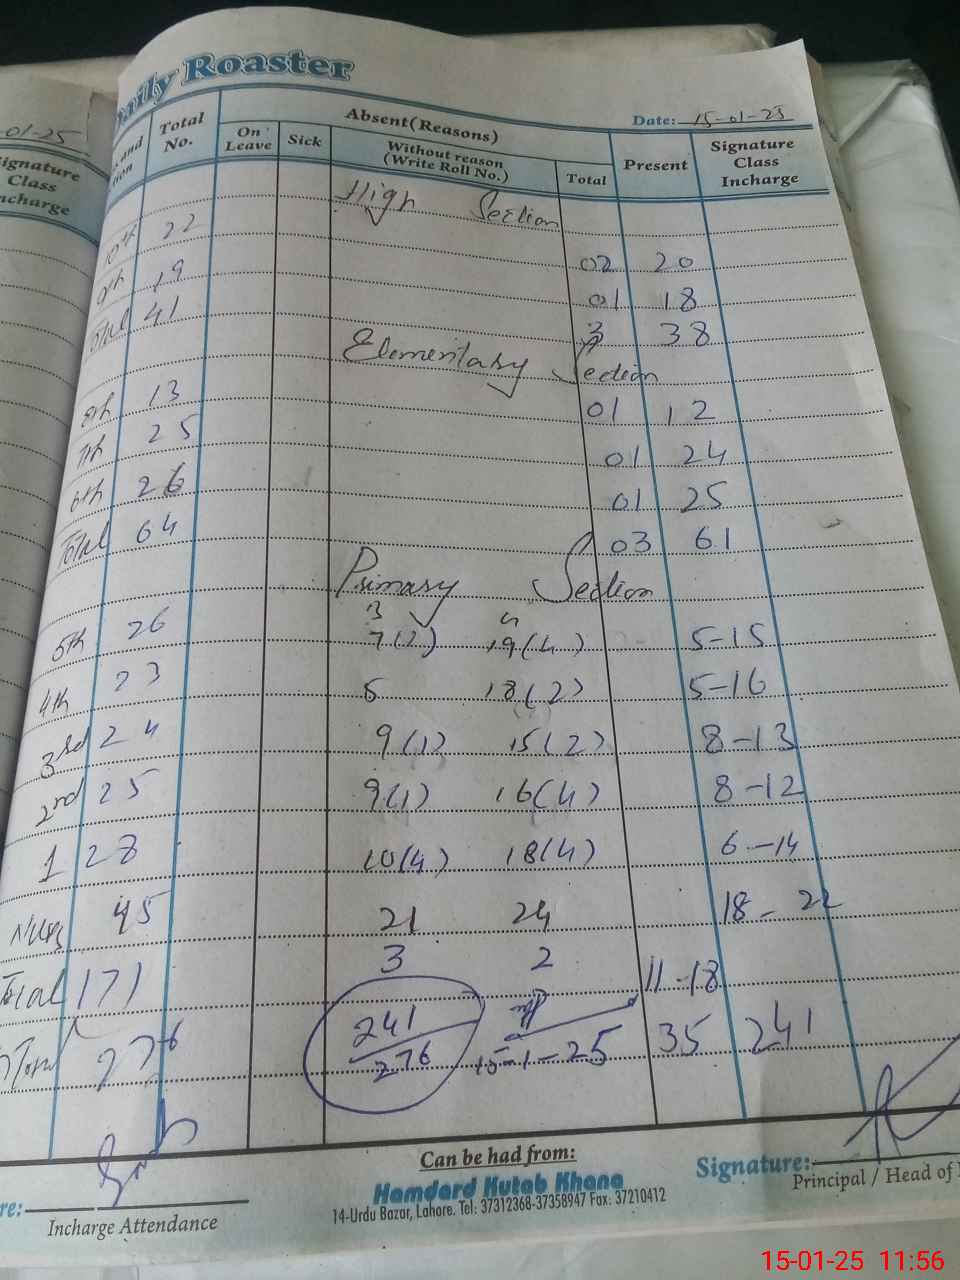 Daily Roaster
-01-25
Date: 15-01-25
Signature Class Incharge
and
Total No.
On Leave
Sick
Absent(Reasons)
Without reason (Write Roll No.)
Total
Present
Signature Class Incharge
High Section
10th 22 02 20
9th 19 01 18
Total 41 3 38
Elementary Section
8th 13 01 12
7th 25 01 24
6th 26 01 25
Total 64 03 61
Primary Section
3 4
5th 26 7(2) 19(4) 5-15
4th 23 5 18(2) 5-16
3rd 24 9(1) 15(2) 8-13
2nd 25 9(1) 16(4) 8-12
1 28 10(4) 18(4) 6-14
Nurs 45 21 24 18-22
3 2
Total 171 11-18
276 241/276 15-1-25 35 241
Can be had from:
Hamdard Kutab Khana
14-Urdu Bazar, Lahore. Tel: 37312368-37358947 Fax: 37210412
re:
Incharge Attendance
Signature:
Principal / Head of
15-01-25 11:56